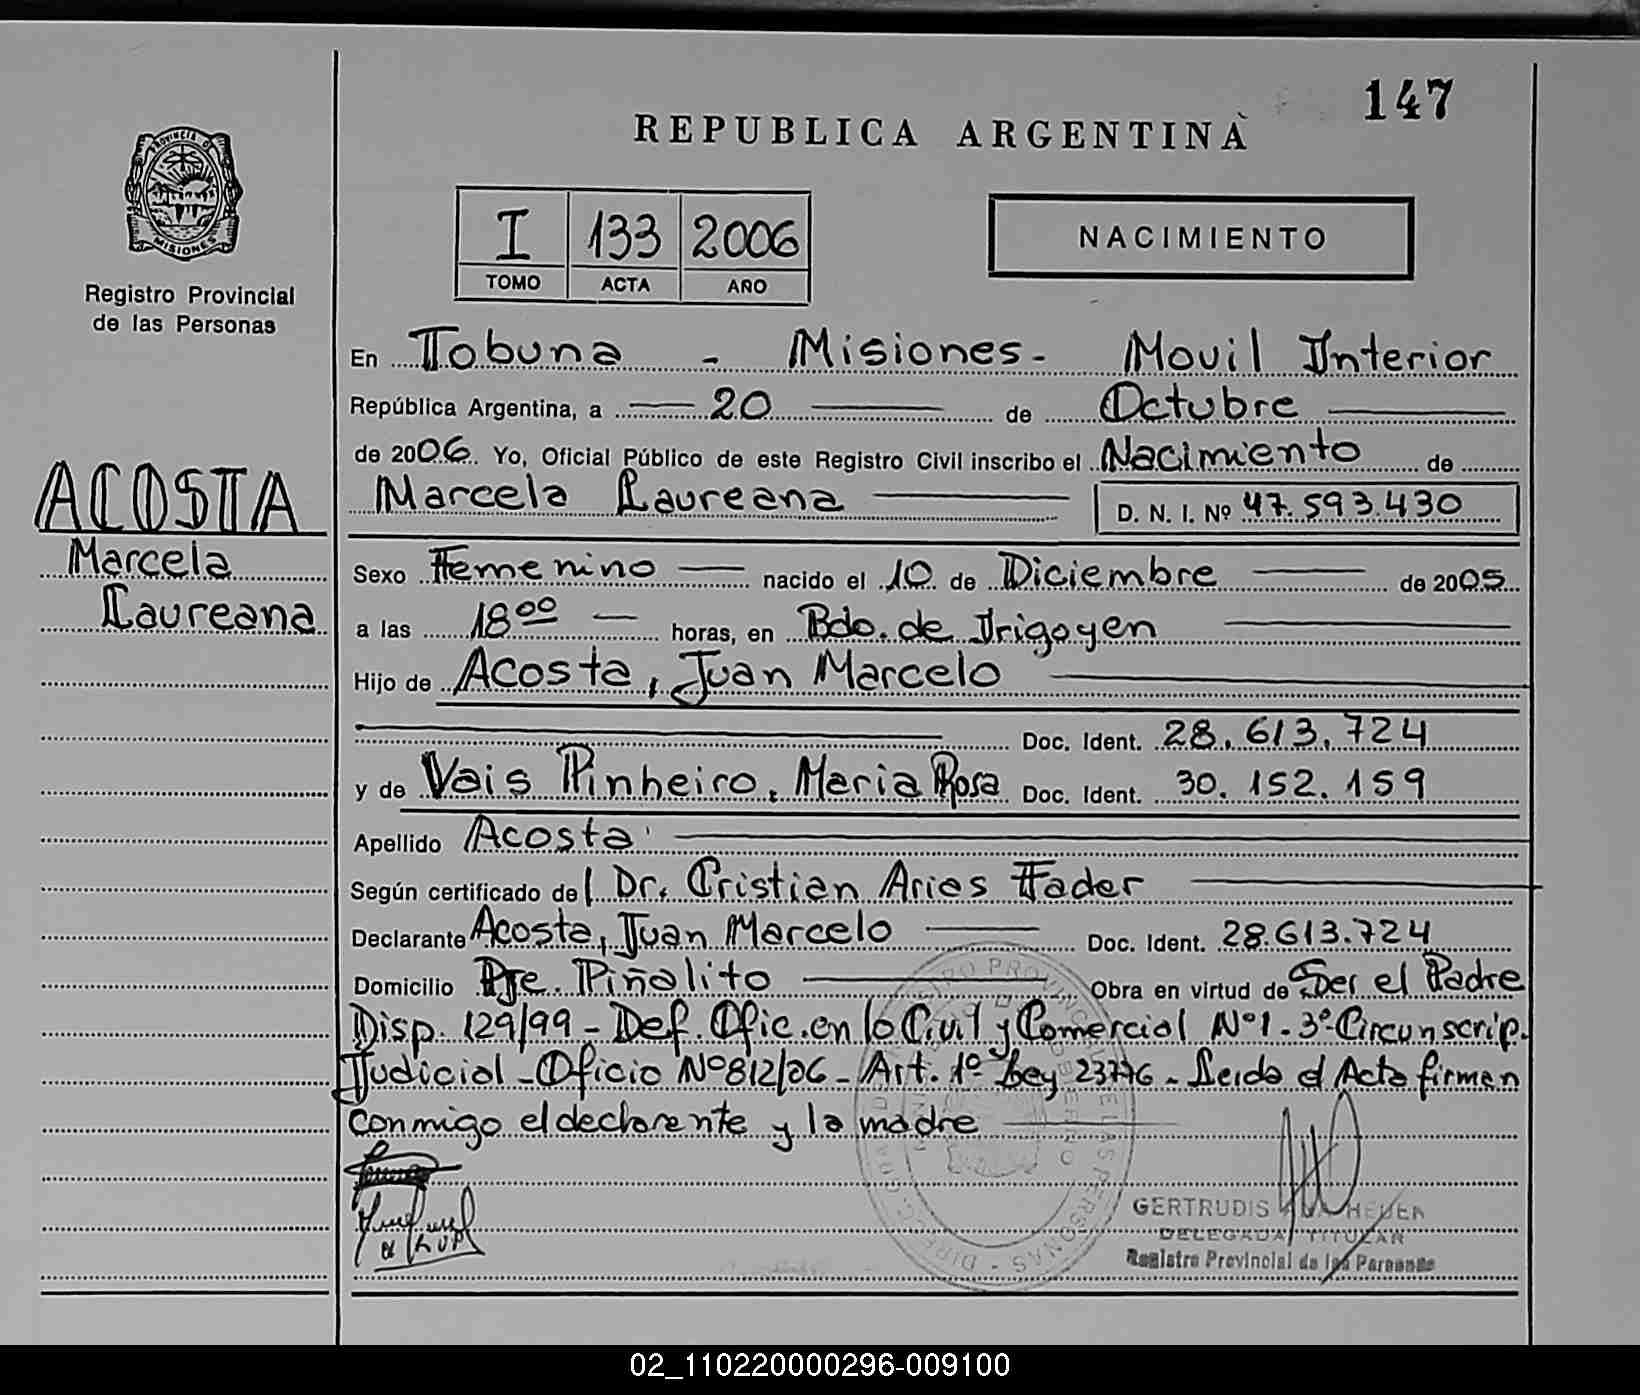 147
REPUBLICA ARGENTINA
PROVINCIA DE
MISIONES
Registro Provincial
de las Personas
I 133 2006
TOMO ACTA AÑO
NACIMIENTO
En Tobuna - Misiones - Movil Interior
República Argentina, a 20 de Octubre
de 2006. Yo, Oficial Público de este Registro Civil inscribo el Nacimiento de
Marcela Laureana D. N. I. Nº 47.593.430
ACOSTA
Marcela
Laureana
Sexo Femenino nacido el 10 de Diciembre de 2005
a las 18⁰⁰ horas, en Bdo. de Irigoyen
Hijo de Acosta, Juan Marcelo
Doc. Ident. 28.613.724
y de Vais Pinheiro, Maria Rosa Doc. Ident. 30.152.159
Apellido Acosta
Según certificado del Dr. Cristian Aries Fader
Declarante Acosta, Juan Marcelo Doc. Ident. 28.613.724
Domicilio Pje. Piñalito Obra en virtud de Ser el Padre
Disp. 129/99 - Def. Ofic. en lo Civil y Comercial Nº1 - 3º Circunscrip.
Judicial - Oficio Nº 812/06 - Art. 1º Ley 23776 - Leida el Acta firman
conmigo el declarante y la madre
GERTRUDIS HEUER
DELEGADA TITULAR
Registro Provincial de las Personas
02_110220000296-009100